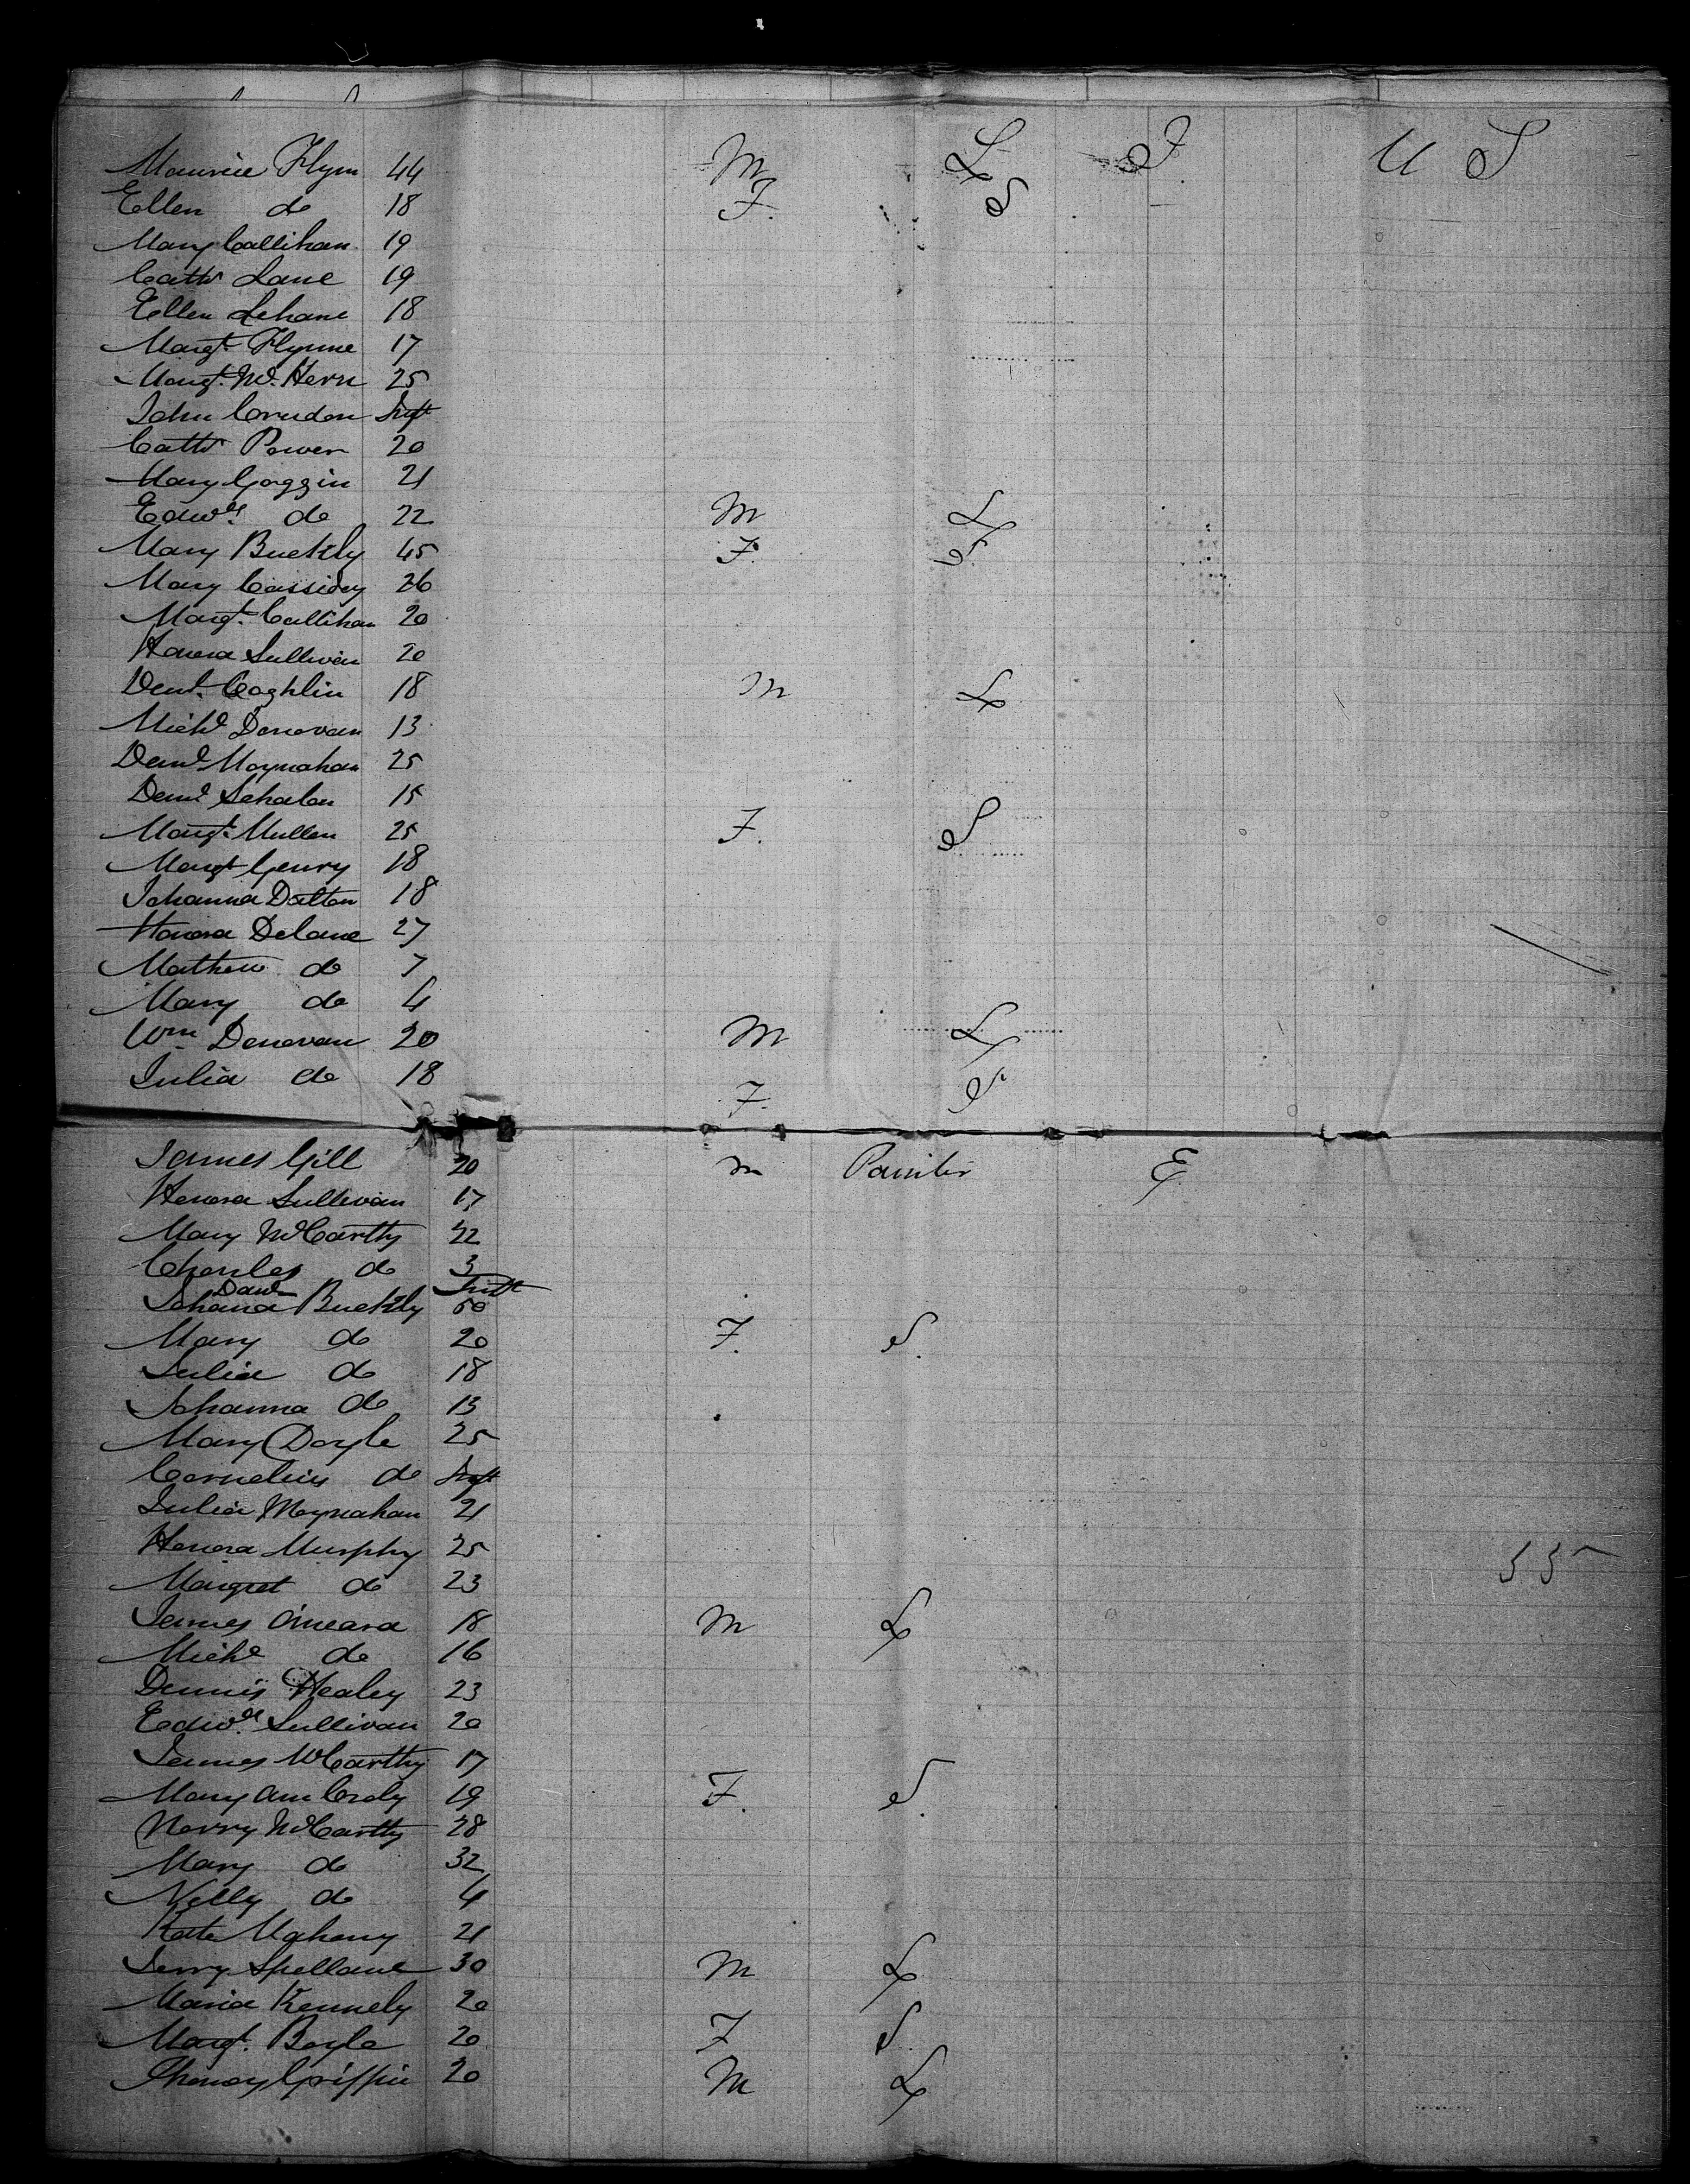 Maurice Flynn 44 M L I U S
Ellen do 18 F. S
Mary Callihan 19
Cath Lane 19
Ellen Lehane 18
Margt. Flynne 17
Margt. Mc. Hern 25
John Corndon Inft
Cath Power 20
Mary Goggin 21
Edwd. do 22 M L
Mary Buckly 45 F. S.
Mary Cassidy 26
Margt. Callihan 20
Honora Sullivan 20
Denl. Coghlin 18 M L
Michl Donovan 13
Danl Moynahan 25
Danl 15
Margt. Mullen 25 F. S
Margt Genry 18
Johanna Dalton 18
Honora Delane 27
Mathew do 7
Mary do 4
Wm Donovan 20 M L
Julia do 18 F. S
James Gill 20 M Painter E
Honora Sullivan 17
Mary McCarthy 22
Charles do 3
Danl Inft
Johana Buckly 50
Mary do 20 F. S.
Julia do 18
Johanna do 13
Mary Doyle 25
Cornelius do Inft
Julia Moynahan 21
Honora Murphy 25
55
Margret do 23
James O'meara 18 M L
Michl do 16
Dennis Healey 23
Edwd. Sullivan 20
James McCarthy 17
Mary Ann Croly 19 F. S.
Norry McCarthy 28
Mary do 32
Nelly do 4
Kate Mahony 21
Jerry Spellane 30 M L
Maria Kennely 20
Margt. Boyle 20 F S.
Thomas Griffin 20 M L